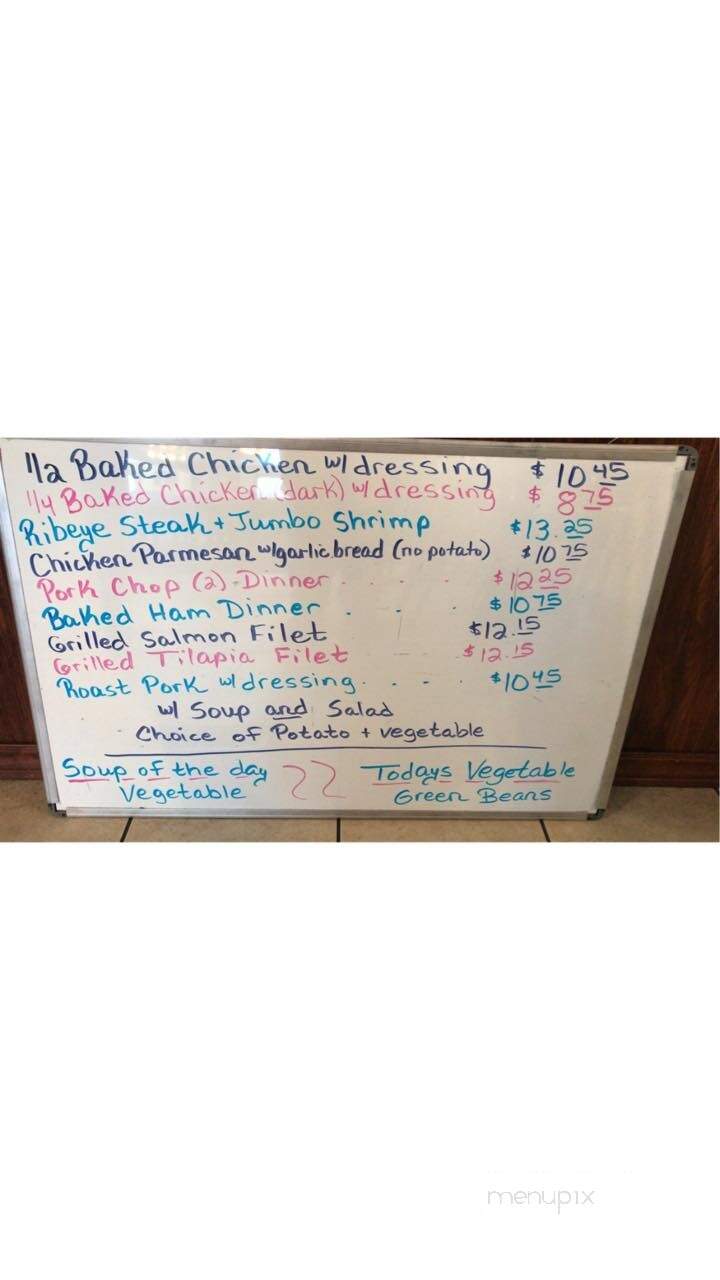 1/2 Baked Chicken w/ dressing $10.45
1/4 Baked Chicken (dark) w/ dressing $8.75
Ribeye Steak + Jumbo Shrimp $13.25
Chicken Parmesan w/garlic bread (no potato) $10.75
Pork Chop (2) Dinner . . . . $12.25
Baked Ham Dinner . . . $10.75
Grilled Salmon Filet $12.15
Grilled Tilapia Filet $12.15
Roast Pork w/ dressing . . . . $10.45
w/ Soup and Salad
Choice of Potato + vegetable
Soup of the day
Vegetable
Todays Vegetable
Green Beans
menupix